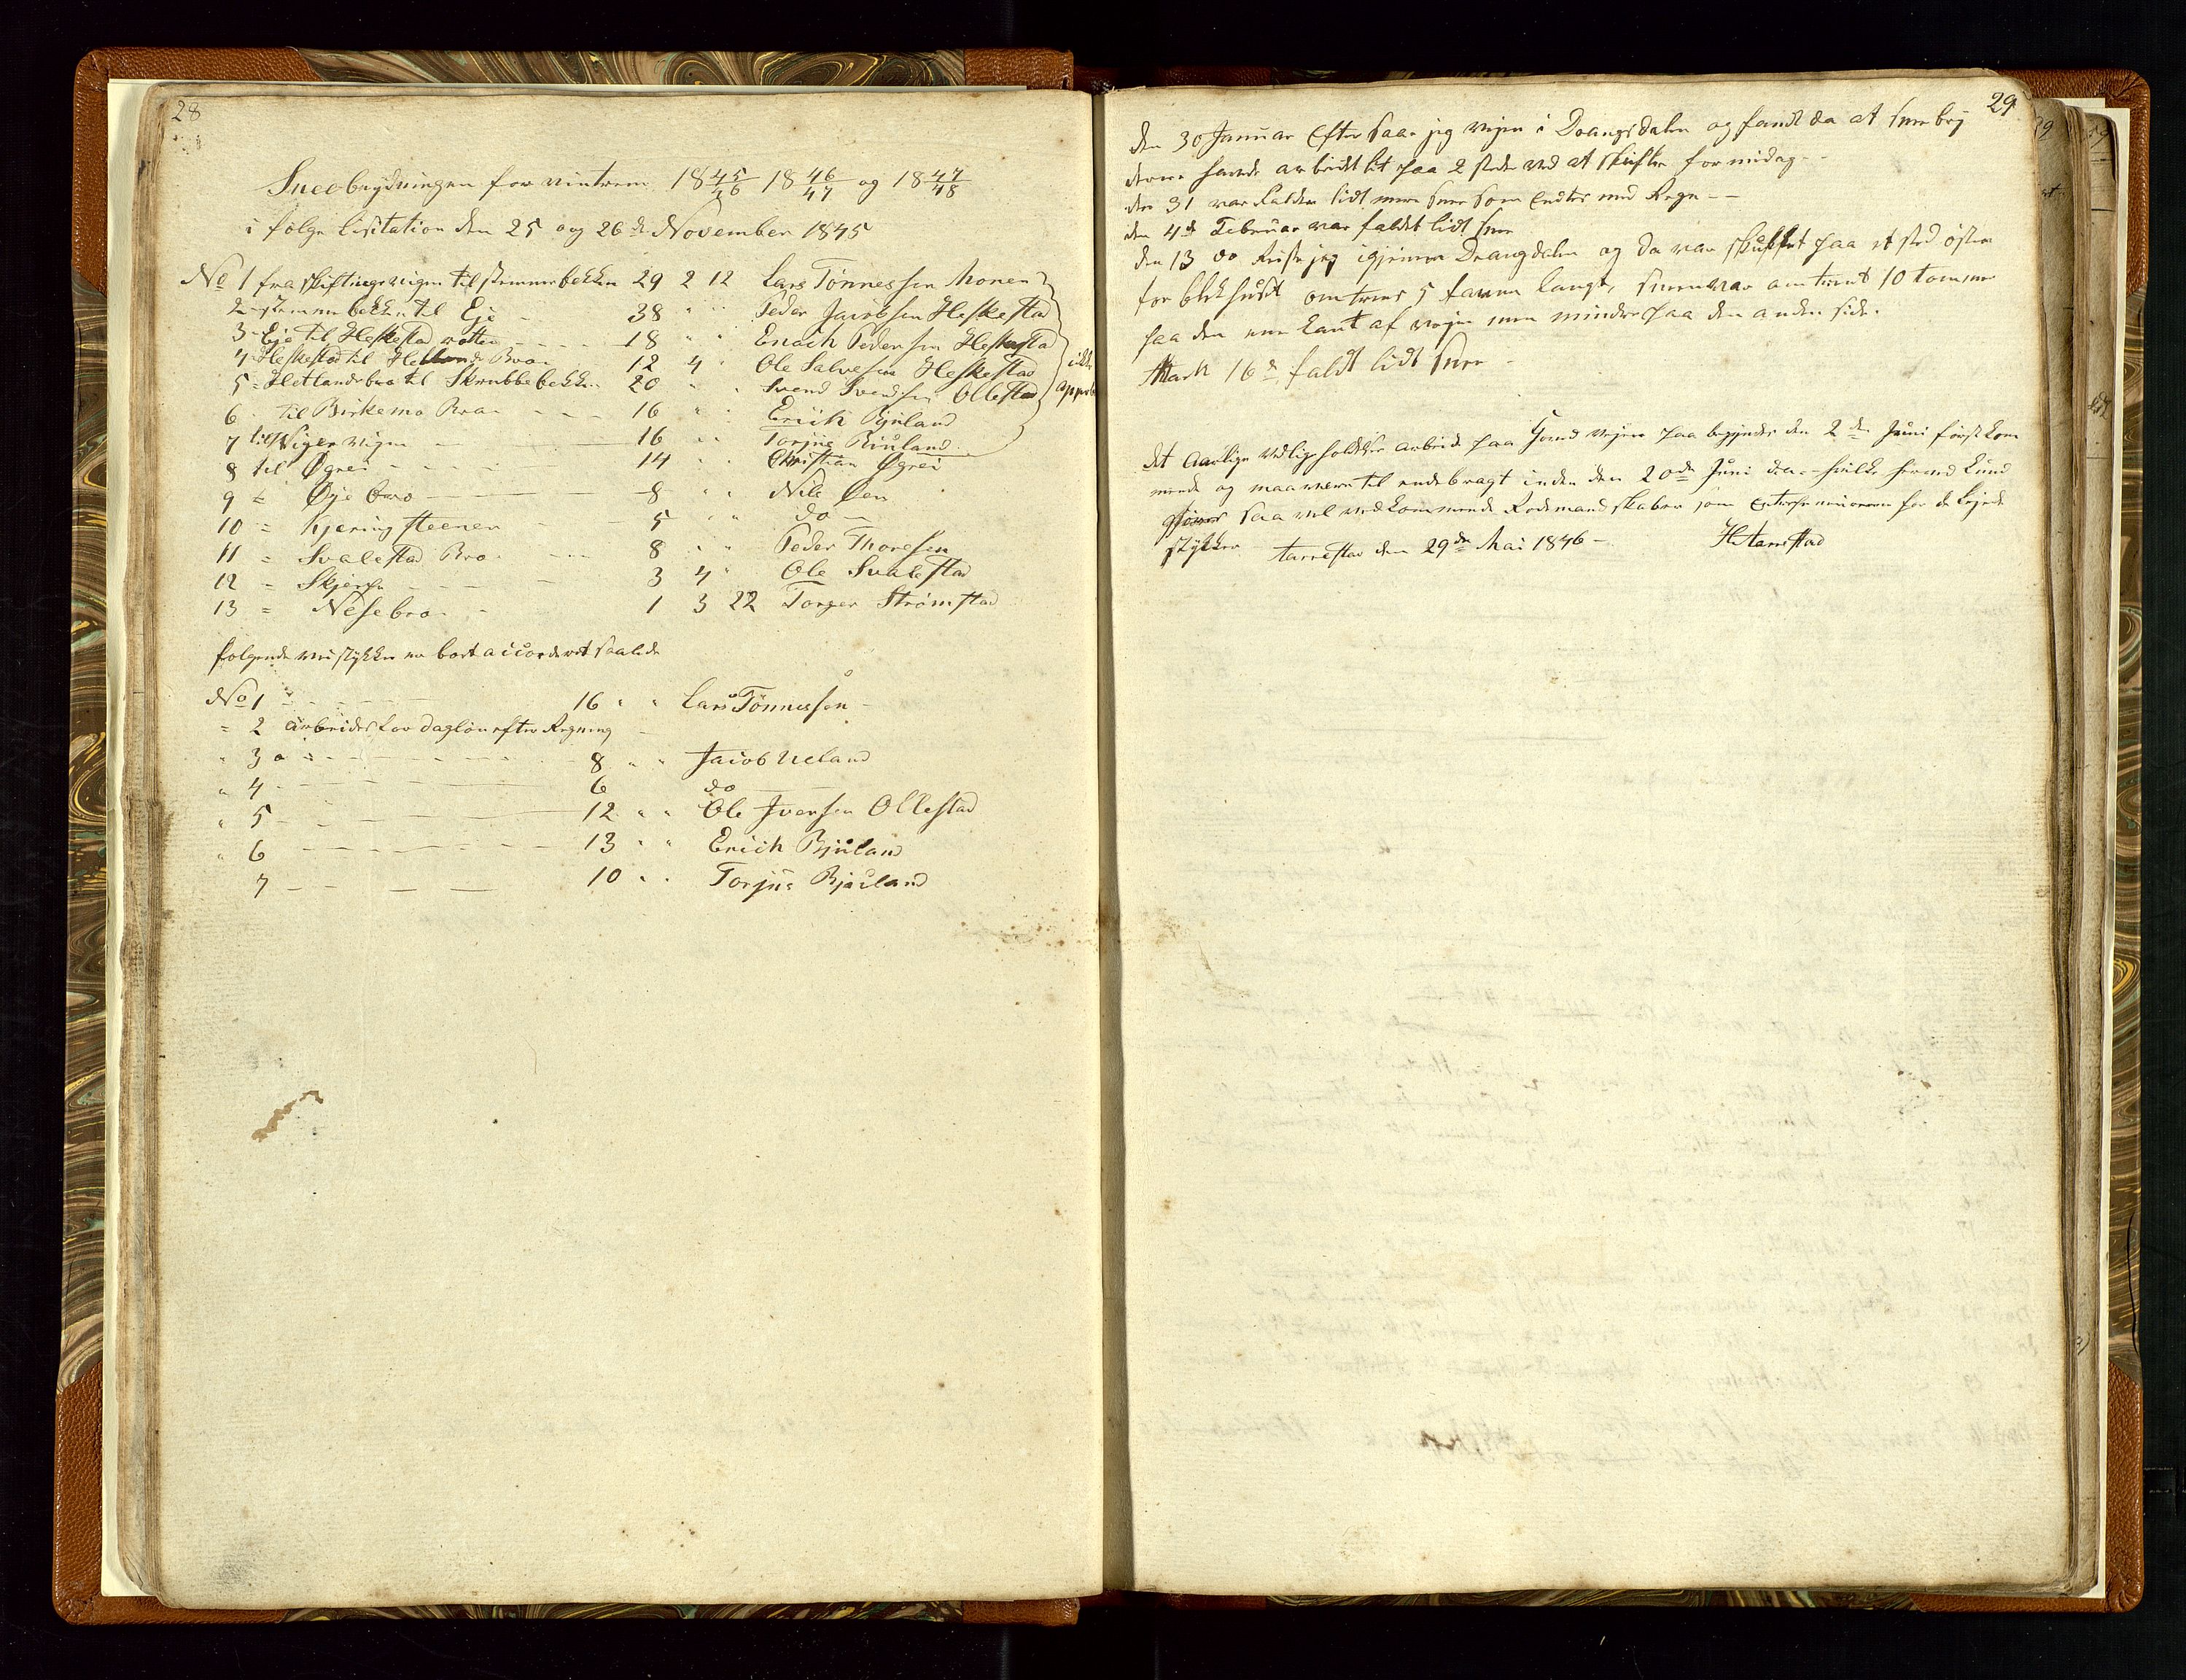 28
Sneebrydningen for vintrene 18 45/46 18 46/47 og 18 47/48
i følge Lisitation den 25 og 26de November 1845
No 1 fra skiftingsvigen til stemmebekken 29 2 12 Lars Tønnessen Monen
2 - stemmebekken til Eje - 38 " " Peder Jacobsen Heskestad
3 - Eje til Heskestad - - - 18 " " Enoch Pedersen Heskestad
4 - Heskestad til Hetlands Broe 12 4 " Ole Salvesen Heskestad
5 - Hetlandsbro til Skrubbebekken 20 " " Svend Svendsen Ollestad
ikke
6 - til Birkemo Broe - - - 16 " " Erich Bjuland
7 til vigen - 16 " " Torjus Biuland
8 til Øgrei - - - - 14 " " Christian Øgrei
9 = Øje bro - - - 8 " " Nils Øen
10 = Kjeringsteenen - - 5 " " do -
11 = Svalestad Bro - - - 8 " " Peder Thorsen
12 = Skjerpe - - - 3 4 " Ole Svalestad
13 = Nesebro - - 1 3 22 Torger Strømstad
følgende veistykker er bortaccorderet saalede
No 1 - - - - 16 " " Lars Tønnessen -
= 2 Arbeides for Dagløn efter Regning -
" 3 - - - - 8 " " Jacob Ueland
" 4 - 6 do
" 5 - - - - 12 " " Ole Iversen Ollestad
" 6 - - - - 13 " " Erich Bjuland
7 - - - - 10 " " Torjus Bjuland
29
den 30 Januar Efter saae jeg vejen i Drangsdalen og fandt da at snee bry
derne havde arbeidet lit paa 2 stede ved at skufle formidag - -
den 31 var falden lidt mere snee som Endtes med Regn - -
den 4de Februar var faldet lidt snee
den 13 do Reiste jeg igjennem Drangdalen og da var skuflet paa et sted østen
for blokhuset omtrent 5 favne langt, sneen var omtrent 10 tommer
paa den ene kant af vejen men mindre paa den anden side.
Mark 16de faldt lidt snee -
Det Aarlige vedligeholdelses arbeid paa vejene paa begyndes den 2den Juni først kom
mende og maa være til endebragt inden den 20de Juni hvilke herved kund
gjøres saa vel vedkommende Rodemandskaber som Entreprenørerne for de
stykker
Tarrestad den 29de Mai 1846 - H Tarrestad